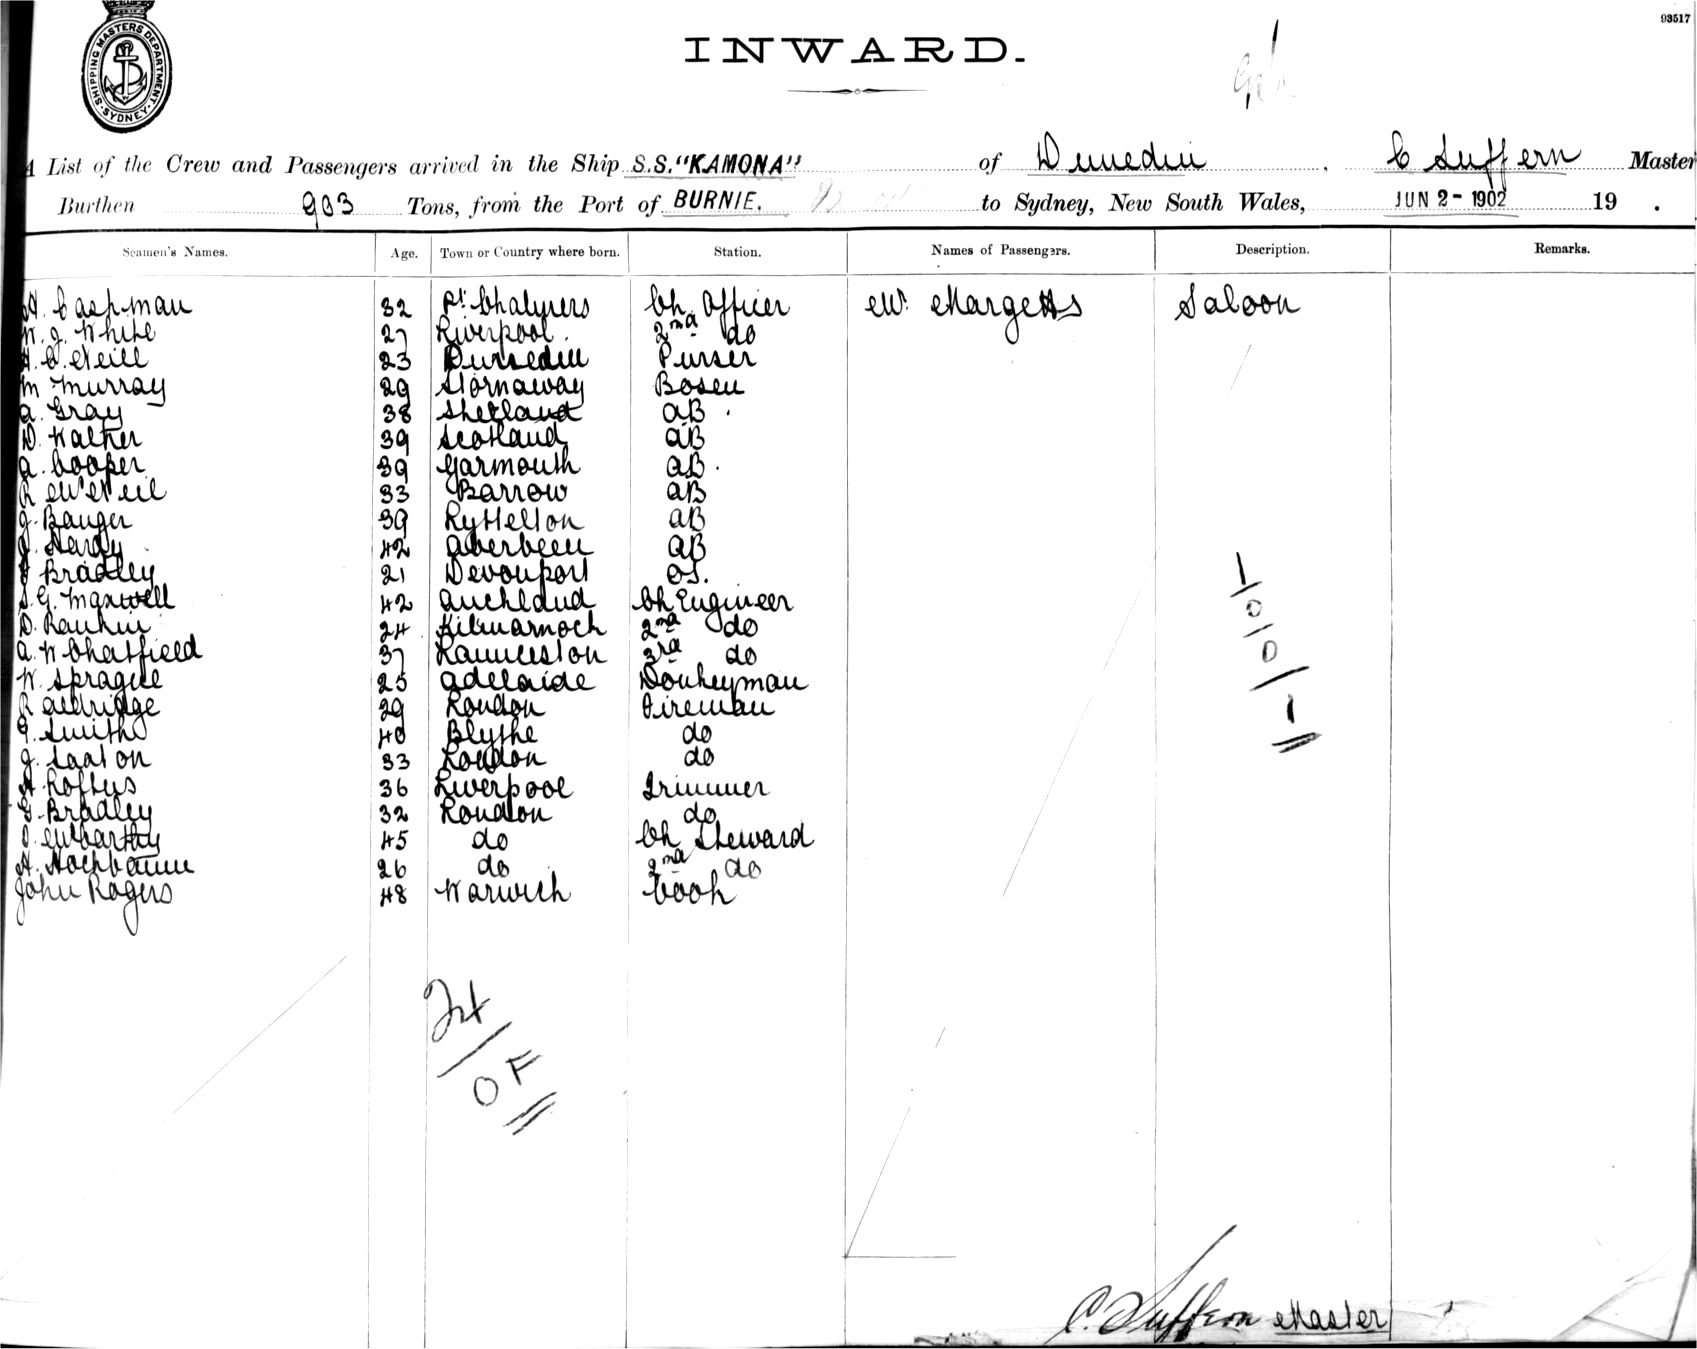 93517
SHIPPING MASTERS DEPARTMENT. SYDNEY
INWARD.
A List of the Crew and Passengers arrived in the Ship S.S. "KAMONA" of Dunedin, C Suffern Master
Burthen 903 Tons, from the Port of BURNIE. to Sydney, New South Wales, JUN 2 - 1902 19 .
Seamen's Names. Age. Town or Country where born. Station. Names of Passengers. Description. Remarks.
A. Capman 32 Pt Chalmers Ch Officer Mr Margetts Saloon
W. J. White 27 Liverpool. 2nd do
A. C. Neill 23 Dunedin Purser
M Murray 29 Stornaway Bosen
A. Gray 38 Shetland AB
D. Walker 39 Scotland AB
A. Cooper 39 Yarmouth AB
R McNeil 33 Barrow AB
J. Bauger 39 Lyttelton AB
J. Hardy 42 Aberdeen AB
Bradley 21 Devonport OS.
S. G. Maxwell 42 Auckland Ch Engineer
D. Rankin 24 Kilmarnock 2nd do
A. W Chatfield 37 Launceston 3rd do
W. Sprague 25 Adelaide Donkeyman
R Aldridge 29 London Fireman
Smith 40 Blythe do
J. Saxton 33 London do
A. Loftus 36 Liverpool Trimmer
G. Bradley 32 London do
McCarthy 45 do Ch Steward
A. Hochbaum 26 do 2nd do
John Rogers 48 Warwick Cook
1/0/0/1
24/OF
C. Suffern Master